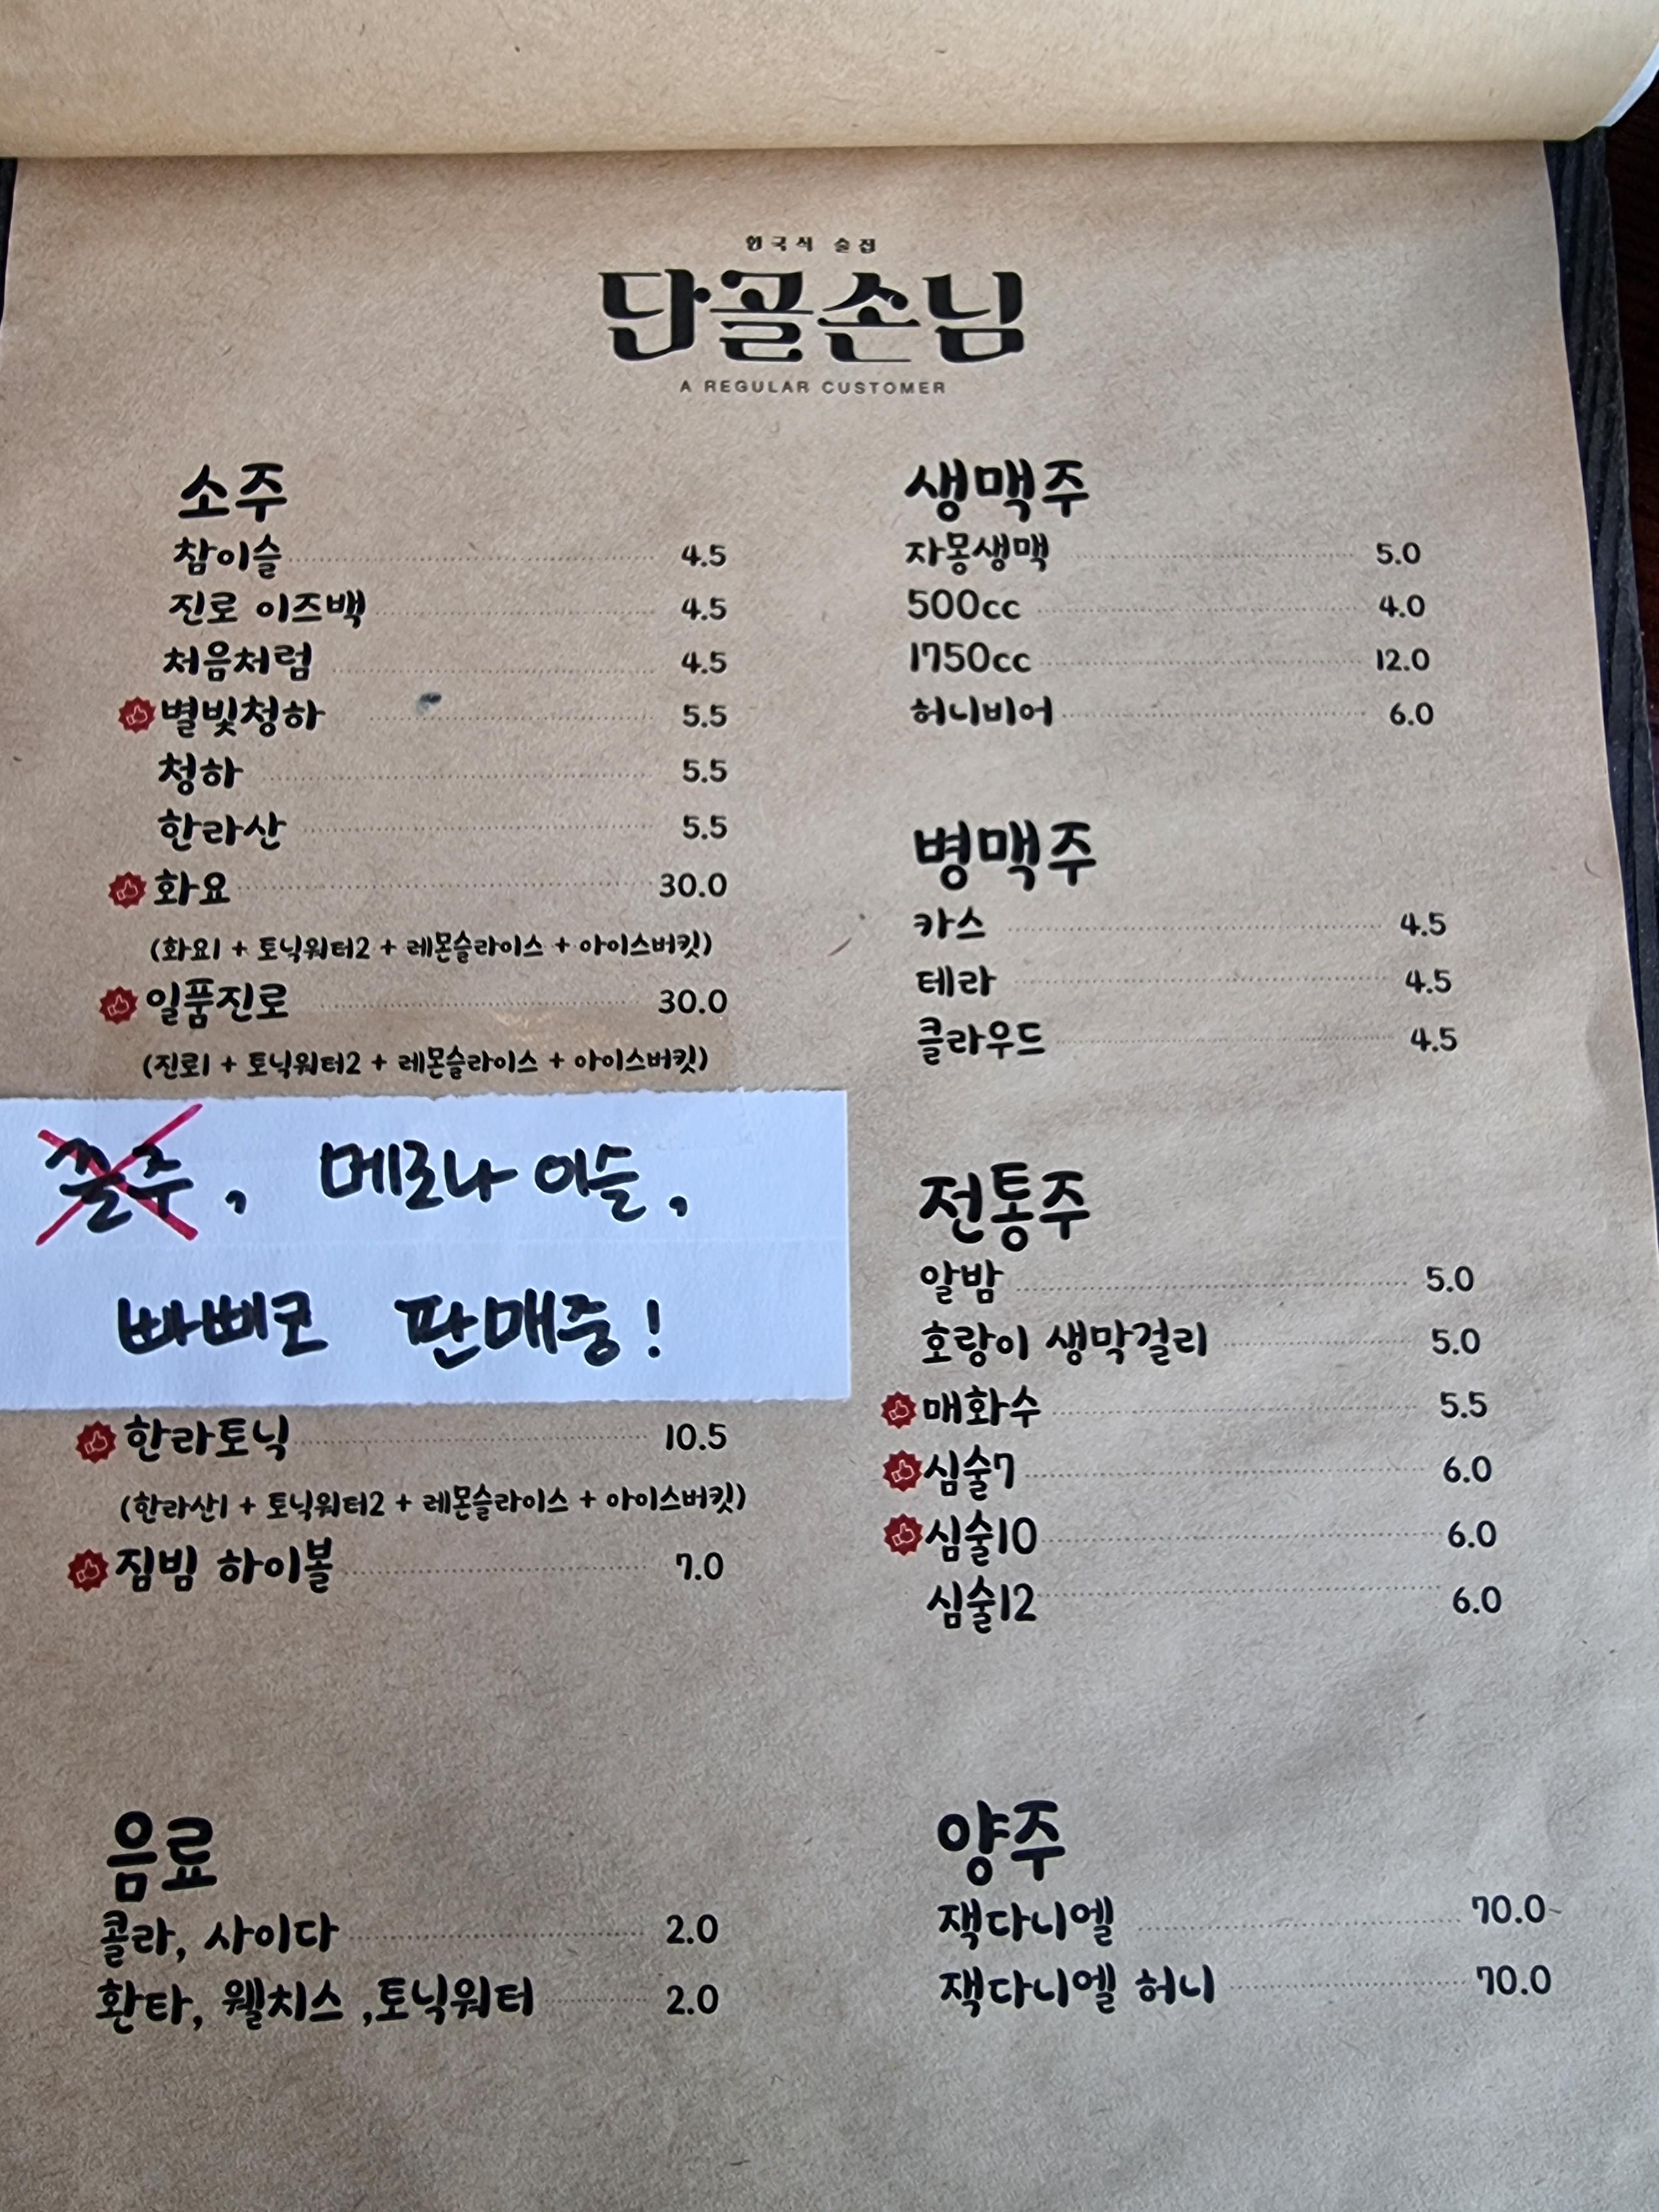 한국식 술집
단골손님
A REGULAR CUSTOMER
소주
참이슬 4.5
진로 이즈백 4.5
처음처럼 4.5
별빛청하 5.5
청하 5.5
한라산 5.5
화요 30.0
(화요1 + 토닉워터2 + 레몬슬라이스 + 아이스버킷)
일품진로 30.0
(진로1 + 토닉워터2 + 레몬슬라이스 + 아이스버킷)
, 메로나 이슬,
빠삐코 판매중!
한라토닉 10.5
(한라산1 + 토닉워터2 + 레몬슬라이스 + 아이스버킷)
짐빔 하이볼 7.0
음료
콜라, 사이다 2.0
환타, 웰치스 ,토닉워터 2.0
생맥주
자몽생맥 5.0
500cc 4.0
1750cc 12.0
허니비어 6.0
병맥주
카스 4.5
테라 4.5
클라우드 4.5
전통주
알밤 5.0
호랑이 생막걸리 5.0
매화수 5.5
심술7 6.0
심술10 6.0
심술12 6.0
양주
잭다니엘 70.0~
잭다니엘 허니 70.0